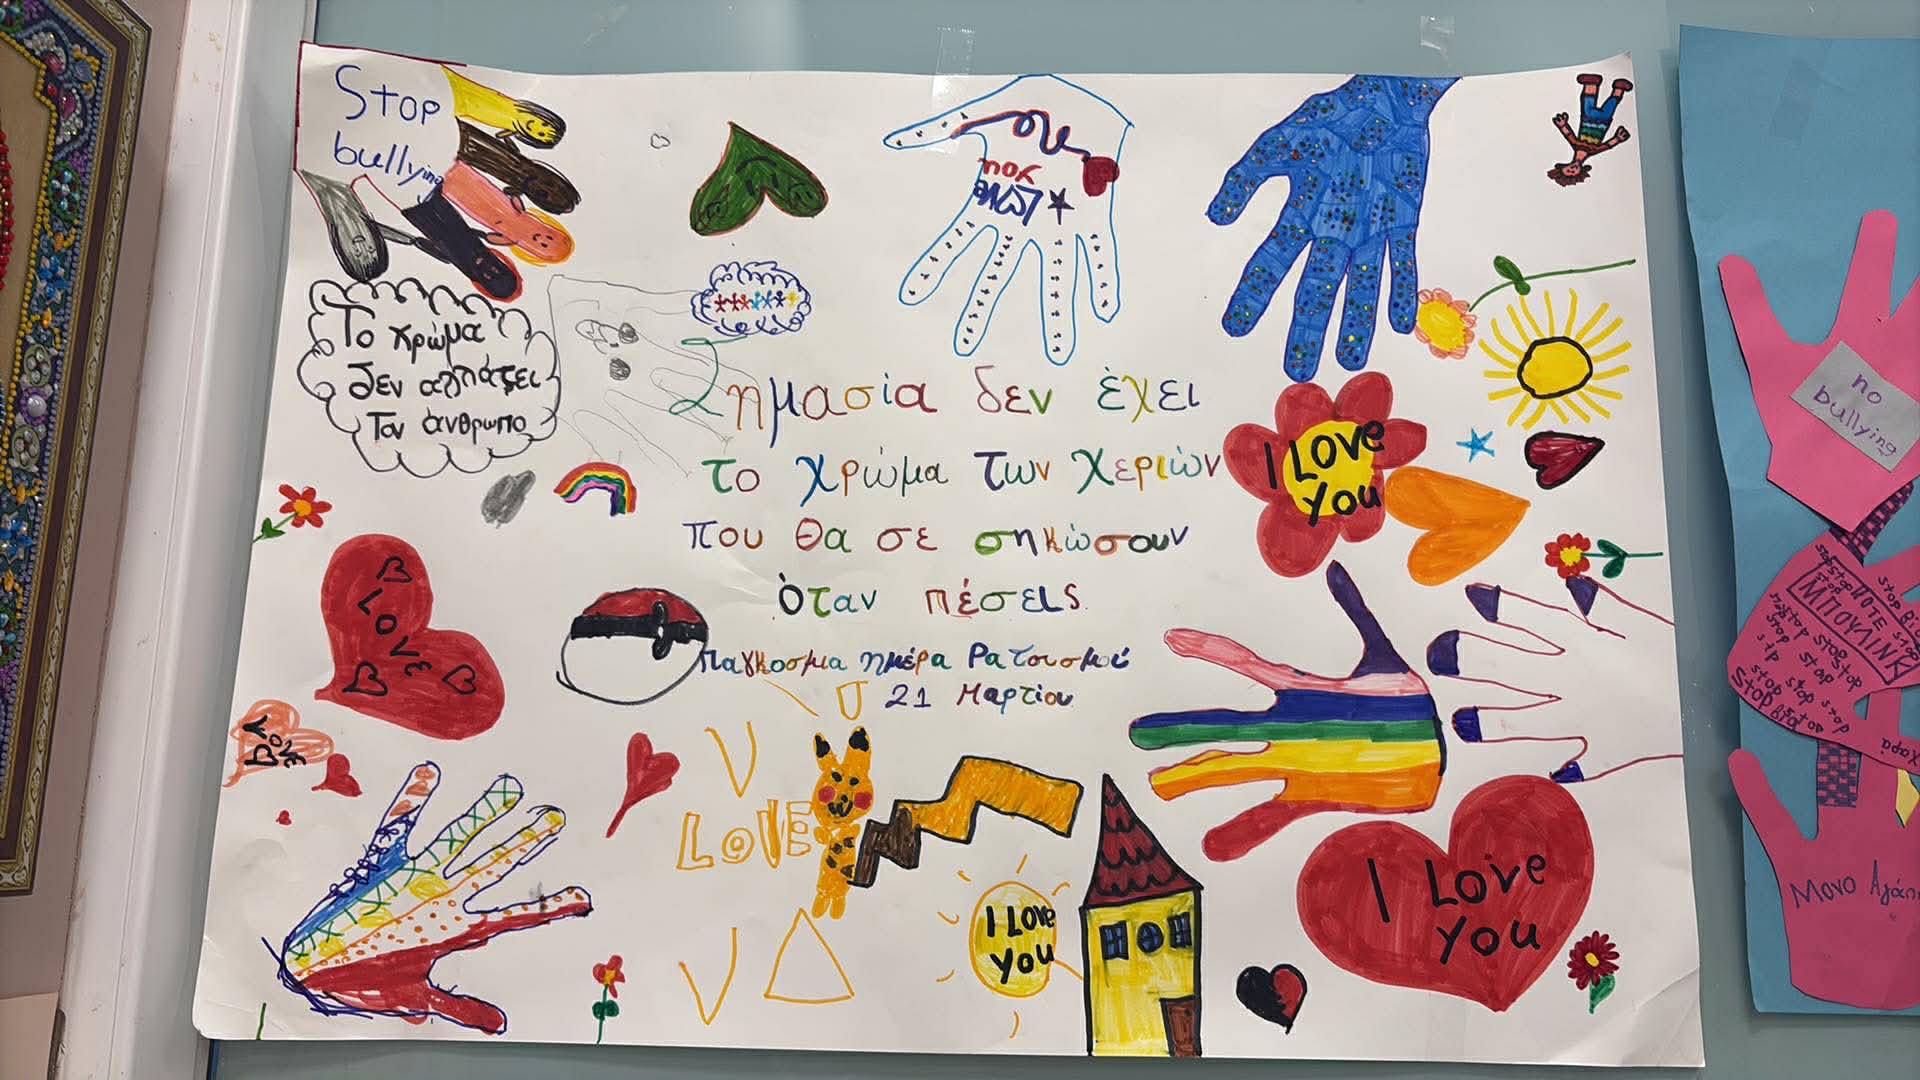 Stop
bullying
Το χρώμα
δεν αλλάζει
Τον άνθρωπο
Σημασία δεν έχει
το χρώμα των χεριών
που θα σε σηκώσουν
όταν πέσεις.
Παγκοσμια ημέρα Ρατσισμού
21 Μαρτίου
Love
you
I LOVE
you
LOVE
LOVE
LOVE
I LOVE
you
I Love
you
no
bullying
stop
ΠΟΤΕ
ΜΠΟΥΛΙΝΚ
stop stop
stop stop
stop stop
Stop βία stop
Χαρά
Μονο Αγάπη